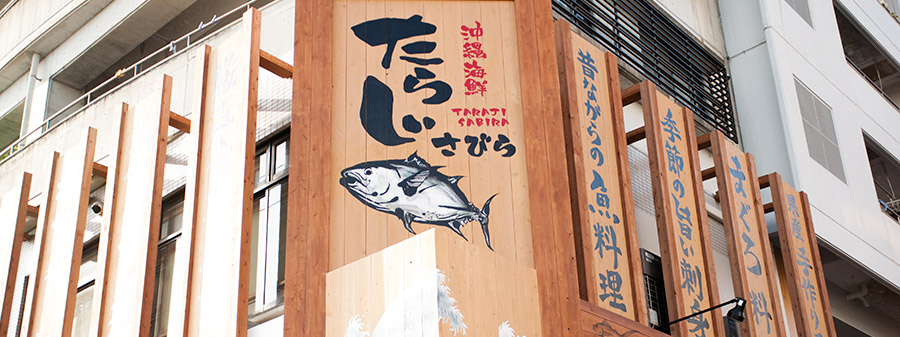 沖縄海鮮
たらじ
さびら
TARAJI
SABIRA
昔ながらの魚料理
季節の旨い刺身
まぐろ料
手作り